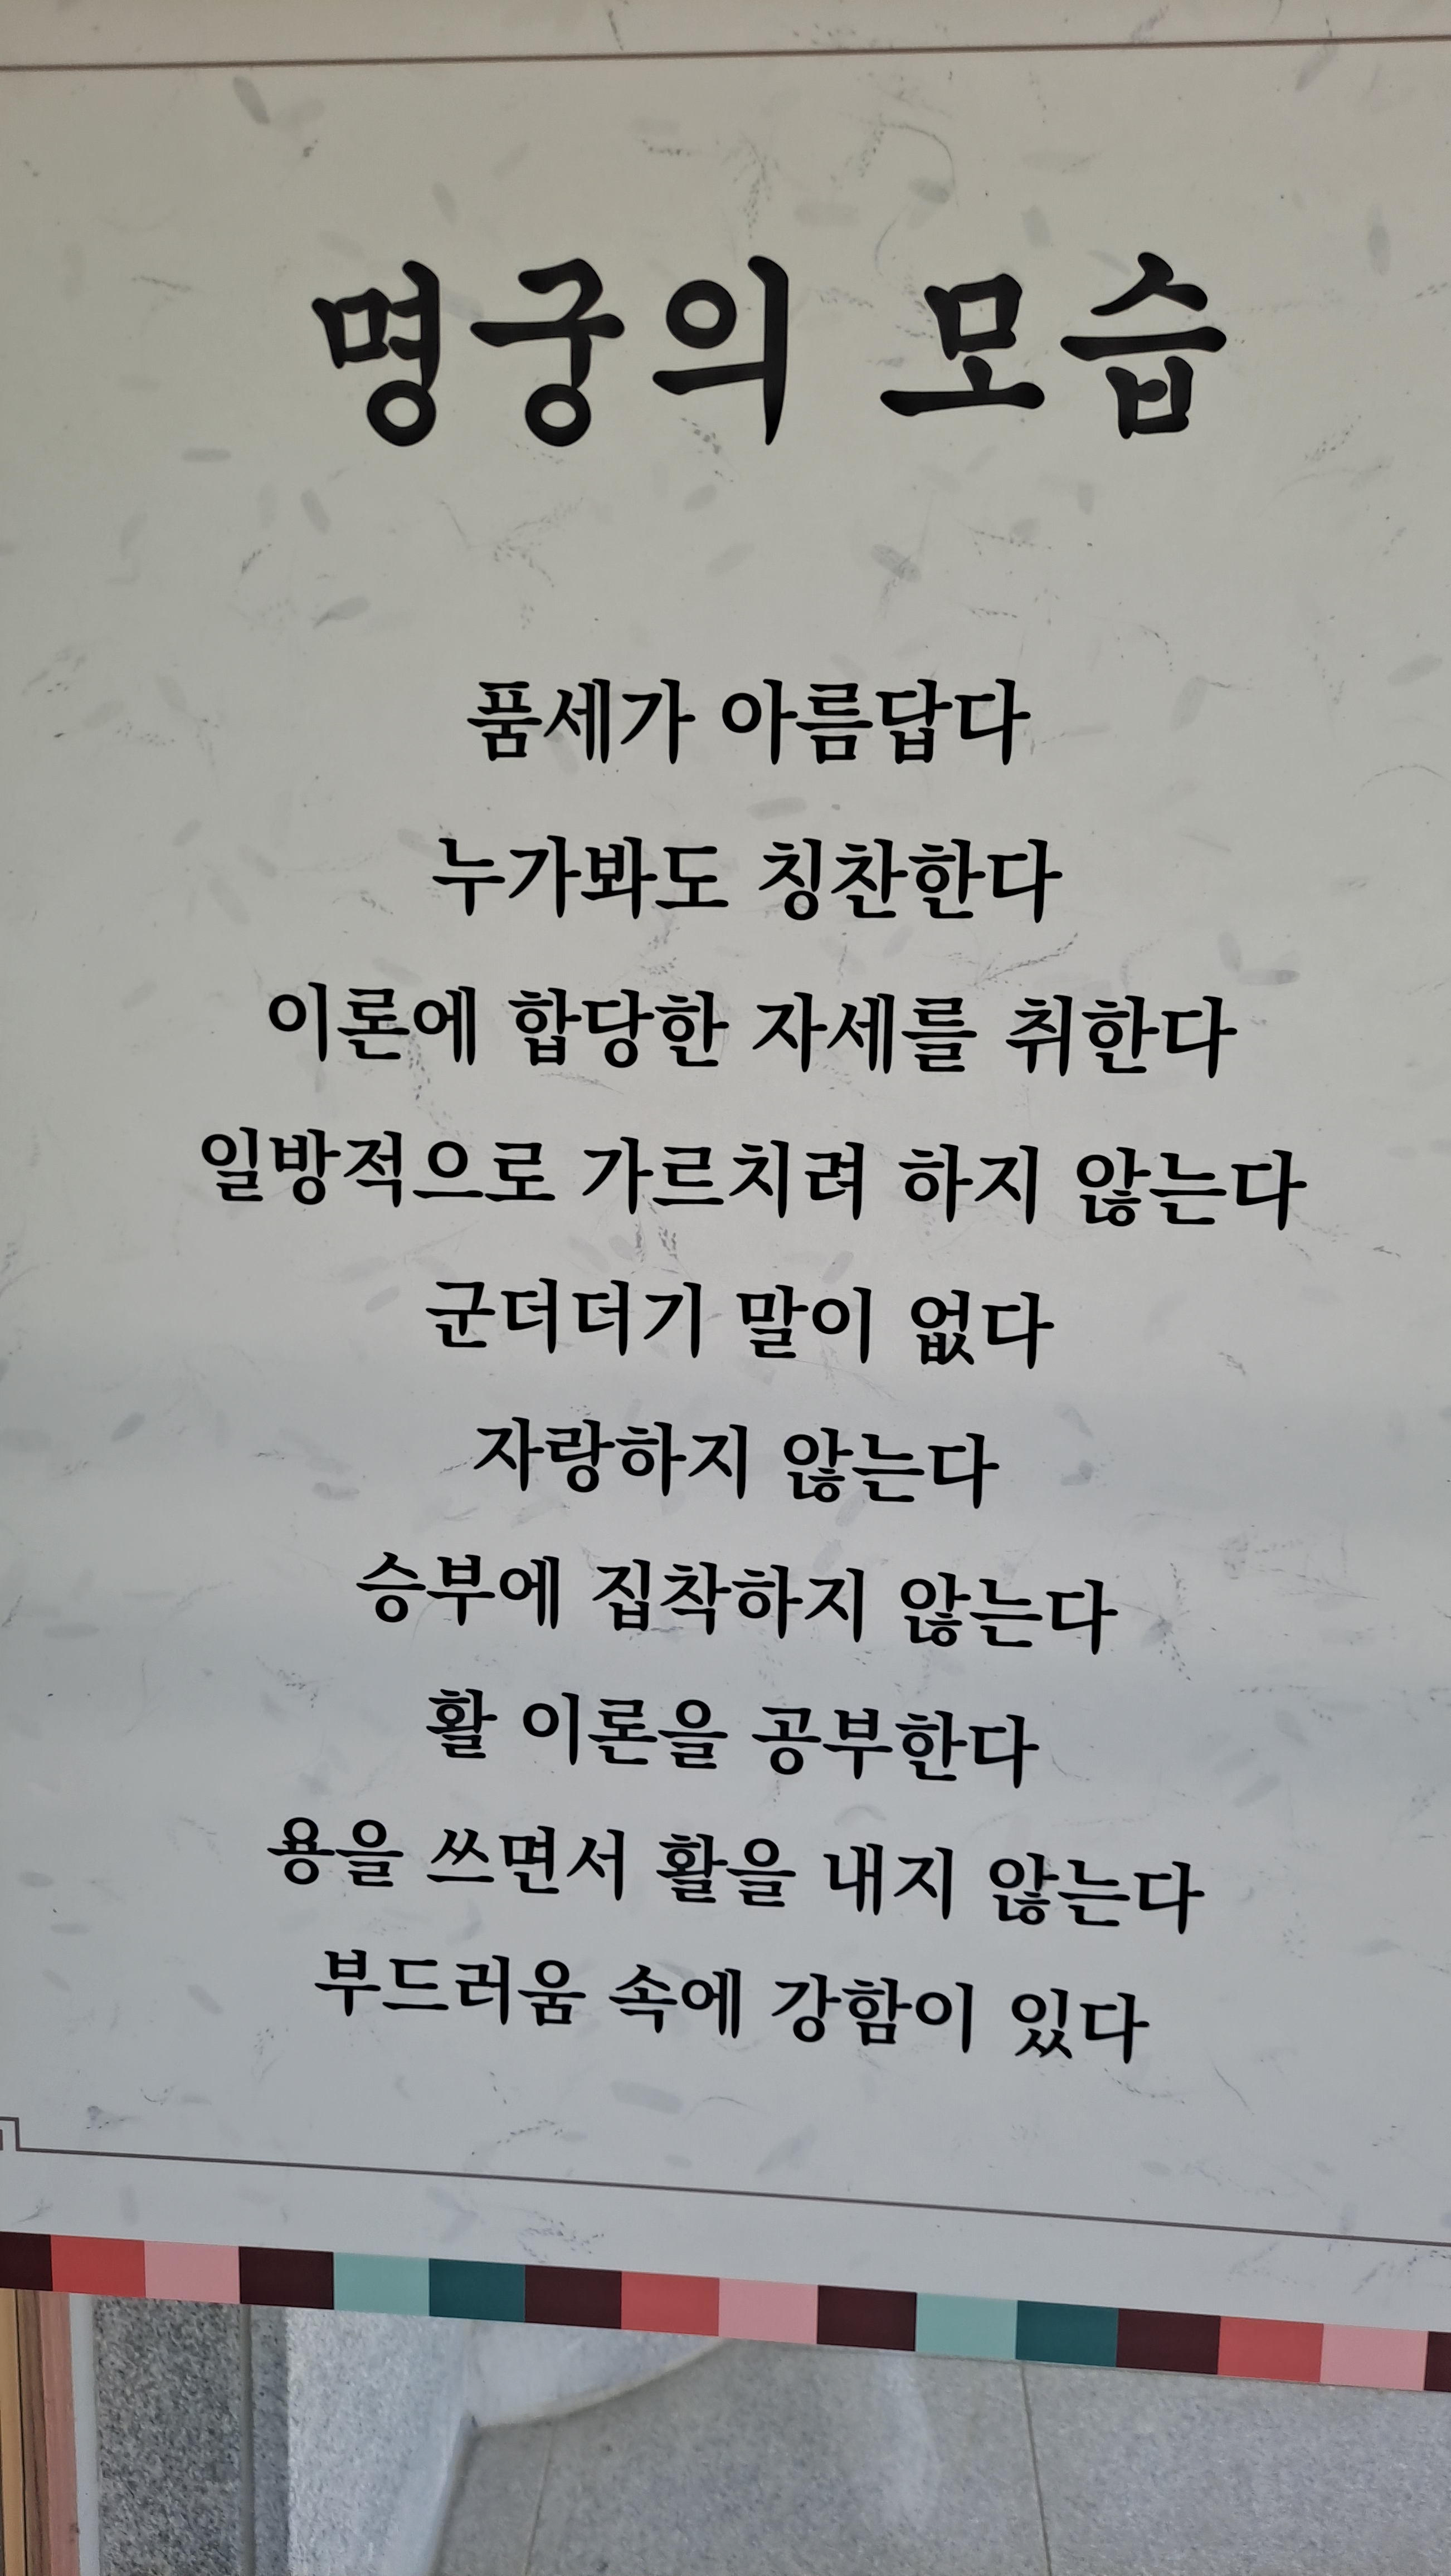 명궁의 모습
품세가 아름답다
누가봐도 칭찬한다
이론에 합당한 자세를 취한다
일방적으로 가르치려 하지 않는다
군더더기 말이 없다
자랑하지 않는다
승부에 집착하지 않는다
활 이론을 공부한다
용을 쓰면서 활을 내지 않는다
부드러움 속에 강함이 있다